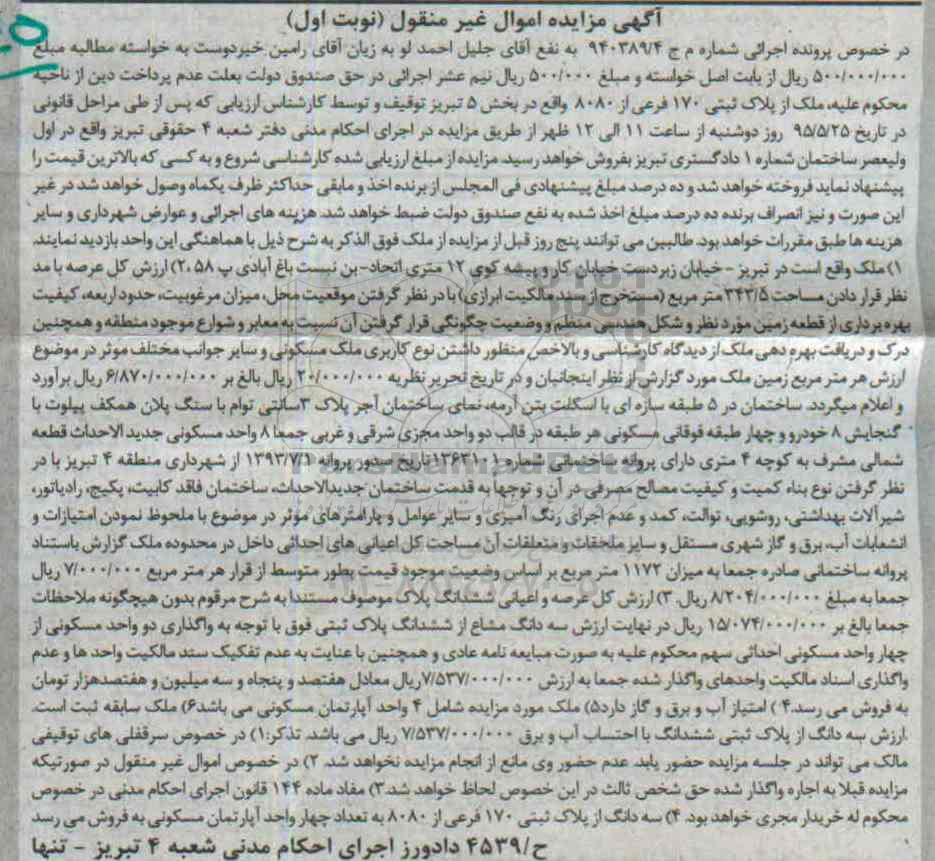 آگهی مزایده اموال غیر منقول (نوبت اول)
در خصوص پرونده اجرائی شماره م ج ۹۴۰۳۸۹/۴ به نفع آقای جلیل احمد لو به زیان آقای رامین خیردوست به خواسته مطالبه مبلغ
۵۰۰/۰۰۰/۰۰۰ ریال از بابت اصل خواسته و مبلغ ۵۰۰/۰۰۰ ریال نیم عشر اجرائی در حق صندوق دولت بعلت عدم پرداخت دین از ناحیه
محکوم علیه، ملک از پلاک ثبتی ۱۷۰ فرعی از ۸۰۸۰ واقع در بخش ۵ تبریز توقیف و توسط کارشناس ارزیابی که پس از طی مراحل قانونی
در تاریخ ۹۵/۵/۲۵ روز دوشنبه از ساعت ۱۱ الی ۱۲ ظهر از طریق مزایده در اجرای احکام مدنی دفتر شعبه ۴ حقوقی تبریز واقع در اول
ولیعصر ساختمان شماره ۱ دادگستری تبریز بفروش خواهد رسید. مزایده از مبلغ ارزیابی شده کارشناسی شروع و به کسی که بالاترین قیمت را
پیشنهاد نماید فروخته خواهد شد و ده درصد مبلغ پیشنهادی فی المجلس از برنده اخذ و مابقی حداکثر ظرف یکماه وصول خواهد شد در غیر
این صورت و نیز انصراف برنده ده درصد مبلغ اخذ شده به نفع صندوق دولت ضبط خواهد شد. هزینه های اجرائی و عوارض شهرداری و سایر
هزینه ها طبق مقررات خواهد بود. طالبین می توانند پنج روز قبل از مزایده از ملک فوق الذکر به شرح ذیل با هماهنگی این واحد بازدید نمایند.
۱) ملک واقع است در تبریز - خیابان زبردست خیابان کار و پیشه کوی ۱۲ متری اتحاد-بن بست باغ آبادی پ ۵۸ ،۲) ارزش کل عرصه با مد
نظر قرار دادن مساحت ۳۴۳/۵ متر مربع (مستخرج از سند مالکیت ابرازی) با در نظر گرفتن موقعیت محل، میزان مرغوبیت، حدود اربعه، کیفیت
بهره برداری از قطعه زمین مورد نظر و شکل هندسی منظم و وضعیت چگونگی قرار گرفتن آن نسبت به معابر و شوارع موجود منطقه و همچنین
درک و دریافت بهره دهی ملک از دیدگاه کارشناسی و بالاخص منظور داشتن نوع کاربری ملک مسکونی و سایر جوانب مختلف موثر در موضوع
ارزش هر متر مربع زمین ملک مورد گزارش از نظر اینجانبان و در تاریخ تحریر نظریه ۲۰/۰۰۰/۰۰۰ ریال بالغ بر ۶/۸۷۰/۰۰۰/۰۰۰ ریال برآورد
و اعلام میگردد. ساختمان در ۵ طبقه سازه ای با اسکلت بتن آرمه، نمای ساختمان آجر پلاک ۳سانتی توام با سنگ پلان همکف پیلوت با
گنجایش ۸ خودرو و چهار طبقه فوقانی مسکونی هر طبقه در قالب دو واحد مجزی شرقی و غربی جمعا ۸ واحد مسکونی جدید الاحداث قطعه
شمالی مشرف به کوچه ۴ متری دارای پروانه ساختمانی شماره ۱۳۶۲۱۰۱ تاریخ صدور پروانه ۱۳۹۳/۷/۱ از شهرداری منطقه ۴ تبریز با در
نظر گرفتن نوع بناء کمیت و کیفیت مصالح مصرفی در آن و توجها به قدمت ساختمان جدیدالاحداث، ساختمان فاقد کابیت، پکیج، رادیاتور،
شیرآلات بهداشتی، روشویی، توالت، کمد و عدم اجرای رنگ آمیزی و سایر عوامل و پارامترهای موثر در موضوع با ملحوظ نمودن امتیازات و
انشعابات آب، برق و گاز شهری مستقل و سایر ملحقات و متعلقات آن مساحت کل اعیانی های احداثی داخل در محدوده ملک گزارش باستناد
پروانه ساختمانی صادره جمعا به میزان ۱۱۷۲ متر مربع بر اساس وضعیت موجود قیمت بطور متوسط از قرار هر متر مربع ۷/۰۰۰/۰۰۰ ریال
جمعا به مبلغ ۸/۲۰۴/۰۰۰/۰۰۰ ریال. ۳) ارزش کل عرصه و اعیانی ششدانگ پلاک موصوف مستندا به شرح مرقوم بدون هیچگونه ملاحظات
جمعا بالغ بر ۱۵/۰۷۴/۰۰۰/۰۰۰ ریال در نهایت ارزش سه دانگ مشاع از ششدانگ پلاک ثبتی فوق با توجه به واگذاری دو واحد مسکونی از
چهار واحد مسکونی احداثی سهم محکوم علیه به صورت مبایعه نامه عادی و همچنین با عنایت به عدم تفکیک سند مالکیت واحد ها و عدم
واگذاری اسناد مالکیت واحدهای واگذار شده جمعا به ارزش ۷/۵۳۷/۰۰۰/۰۰۰ریال معادل هفتصد و پنجاه و سه میلیون و هفتصدهزار تومان
به فروش می رسد.۴) امتیاز آب و برق و گاز دارد۵) ملک مورد مزایده شامل ۴ واحد آپارتمان مسکونی می باشد۶) ملک سابقه ثبت است.
.ارزش سه دانگ از پلاک ثبتی ششدانگ با احتساب آب و برق ۷/۵۳۷/۰۰۰/۰۰۰ ریال می باشد. تذکر:۱) در خصوص سرقفلی های توقیفی
مالک می تواند در جلسه مزایده حضور یابد. عدم حضور وی مانع از انجام مزایده نخواهد شد. ۲) در خصوص اموال غیر منقول در صورتیکه
مزایده قبلا به اجاره واگذار شده حق شخص ثالث در این خصوص لحاظ خواهد شد.۳) مفاد ماده ۱۴۴ قانون اجرای احکام مدنی در خصوص
محکوم له خریدار مجری خواهد بود. ۴) سه دانگ از پلاک ثبتی ۱۷۰ فرعی از ۸۰۸۰ به تعداد چهار واحد آپارتمان مسکونی به فروش می رسد
ح/۴۵۳۹ دادورز اجرای احکام مدنی شعبه ۴ تبریز - تنها